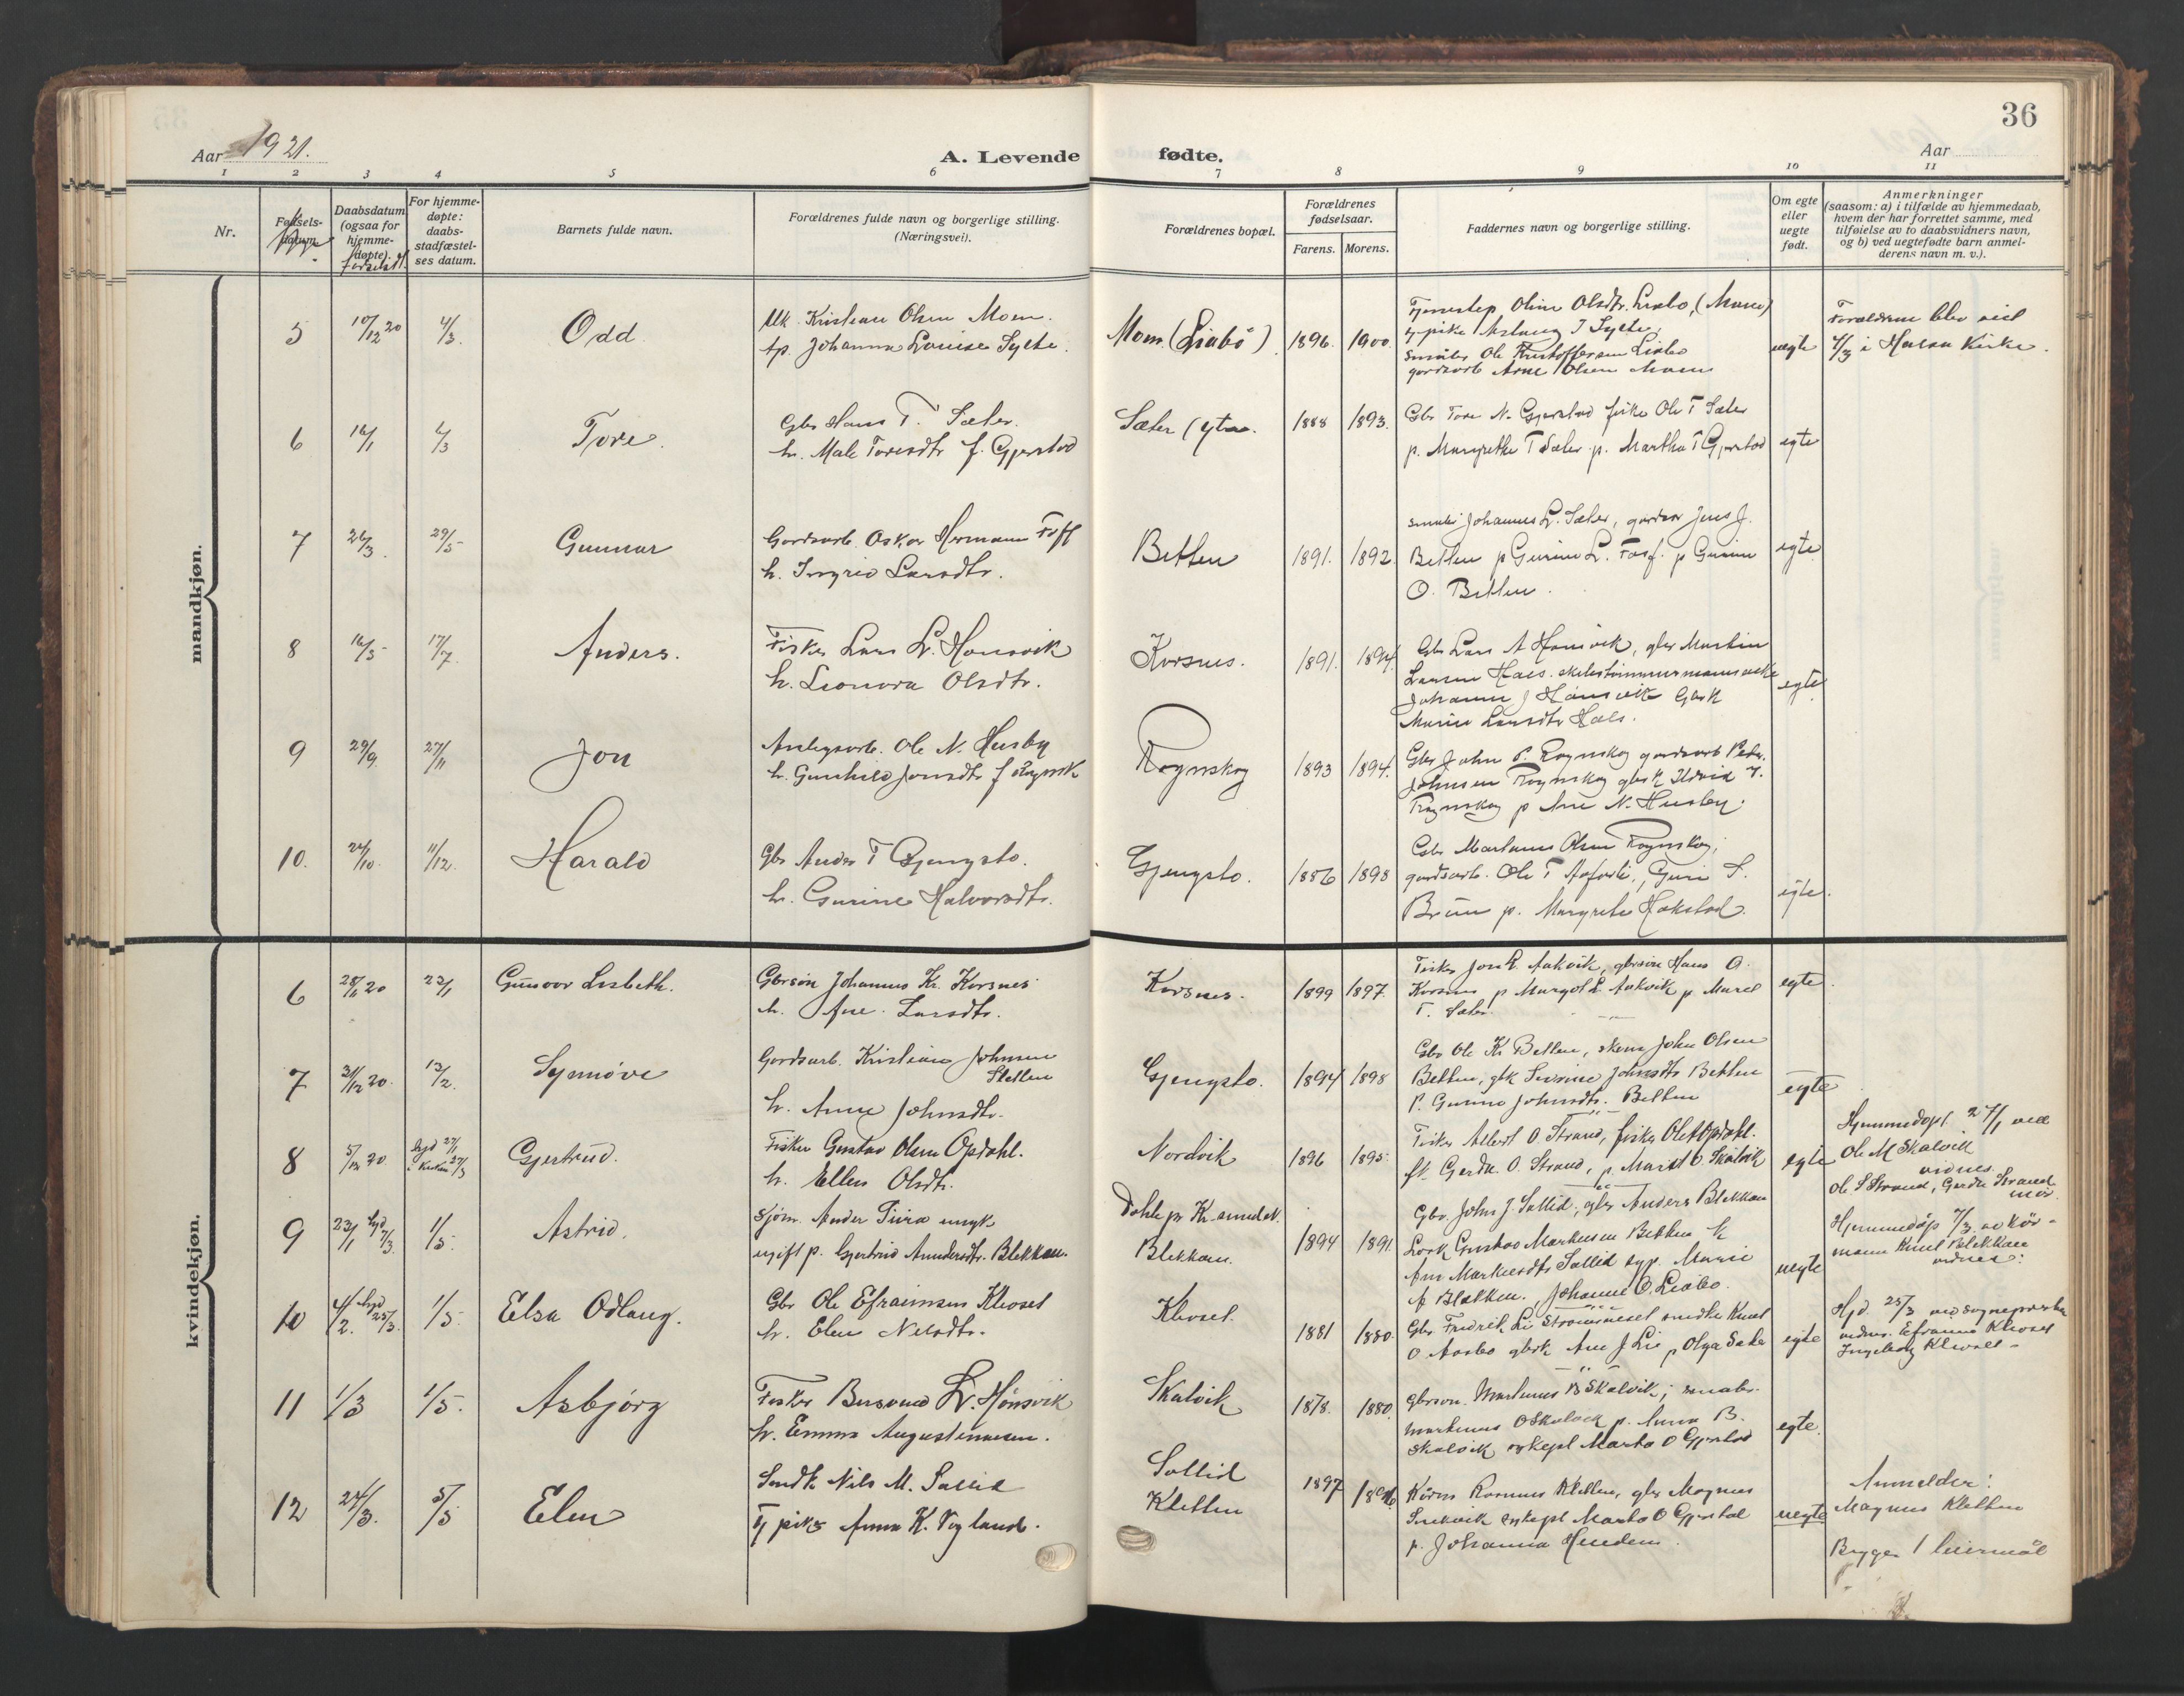 36
Aar 1921.
A. Levende
fødte.
Aar
1 2 3 4 5 6 7 8 9 10 11
Nr.
Fødselsdatum.
Daabsdatum (ogsaa for hjemmedøpte).
For hjemmedøpte: daabsstadfæstelses datum.
Barnets fulde navn.
Forældrenes fulde navn og borgerlige stilling. (Næringsvei).
Forældrenes bopæl.
Forældrenes fødselsaar.
Farens. Morens.
Faddernes navn og borgerlige stilling.
Om egte eller uegte født.
Anmerkninger
(saasom: a) i tilfælde av hjemmedaab,
hvem der har forrettet samme, med
tilføielse av to daabsvidners navn,
og b) ved uegtefødte barn anmelderens navn m. v.).
mandkjøn.
5 10/12 20 4/3. Odd
Kristian Olsen Moen.
Johanna Louise Sylte.
Moen (Liabö) 1896. 1900.
Oline Olsdtr. Liabo, (Moen)
Ole Kristoffersen Liabo
gardsarb Arne Olsen Moen
uegte
Forældrene blev viet
4/3 i Halsa Kirke.
6 16/1 4/3 Tore.
Gbr Hans T. Sæter.
h. Mali Toresdtr f. Gjerstad
Sæter (ytre. 1888 1893.
Gbr Tore N. Gjerstad fisker Ole T Sæter
p. Margrethe T Sæter p. Martha T Gjerstad
egte
7 26/3. 29/5 Gunnar
Gardsarb. Oskar Hermann
h. Ingrid Larsdtr.
Betten 1891. 1892.
Johannes L. Sæter, Jens J.
Betten p Gurine L. p Gurine
O. Betten.
egte
8 16/5 17/7. Anders.
Fisker Lars L. Honsvik
h. Leonora Olsdtr.
Korsnes. 1891. 1894.
Gbr Lars A Honsvik, gbr Martin
Larsen Hals.
Johanna J Honsvik Gbrk
Marie Larsdtr Hals.
egte
9 29/9. 27/11 Jon
Anlegsarb. Ole N. Husby
h. Gunhild Jonsdtr f Røgnsk
Rognskog 1893 1894.
Gbr John P. Rognskog gardsarb Peder
Johnsen Rognskog gbrk
Rognskog p Ane N. Husby.
10. 24/10. 11/12. Harald
Gbr Anders T Gjengsto.
h. Gurine Halvorsdtr.
Gjengsto. 1886 1898
Gbr Martinus Olsen Rognskog,
gardsarb. Ole T Aasarli, Guri S.
Bruun p. Margrete Hakstad.
egte.
kvindekjøn.
6 28/11 20 23/1 Gunvor Lisbeth.
Gbrsøn Johannes Kr. Korsnes
h. Ane Larsdtr.
Korsnes. 1899 1897.
Fisker Jon L. Aakvik, gbrsøn Hans O.
Korsnes p Margot L. Aakvik p Maret
T. Sæter
egte.
7 31/12 20. 13/2. Synnöve
Gardsarb. Kristian Johnsen
Sletten
h. Anne Johnsdtr.
Gjengsto. 1894 1898
Gbr Ole Kr Betten, John Olsen
Betten, gbk Serine Johnsdtr Betten
p. Gurine Johnsdtr. Betten
egte
8 5/12 20 hjd 27/1 i kirken 27/3 Gjertrud.
Fisker Gustav Olsen Opdahl.
h. Ellen Olsdtr.
Nordvik 1896 1895.
Fisker Albert O. Strand, fisker Ole A Opdahl.
Gerda O. Strand, p. Marit O. Skalvik
egte
Hjemmedöpt 27/1 ved
Ole M Skalvik
vidner.
Ole S Strand, Gerda Strand
9 23/1 hjd 7/3. 1/5. Astrid.
Sjøm. Anders
ugift p. Gjertrud Andersdtr. Blekken.
Dahle pr Kr.sund N.
Blekken. 1894 1891.
Gbr. John J. Sollid, gbr Anders Blekken
Gustav Markussen Betten
Ane Markusdtr Sollid syp. Marie
A Blekken, Johanne O. Liabo.
uegte
Hjemmedöp 7/3 av
Knut Blekken
vidner:
10 4/2. hjd 25/3. 1/5 Elsa Odlaug.
Gbr Ole Efraimsen Klevset
h. Elen Nilsdtr.
Klevset. 1881 1880.
Gbr Fredrik Li Strömsneset Knut
O Aasbo gbrk Ane J Lie p Olga Sæter
egte
Hjd 25/3 ved sogneprest
vidner. Efraim Klevset
Ingeborg Klevset
11 1/3 1/5. Asbjörg
Fisker Bersvend L. Hönsvik
h. Emma Augustinussen.
Skalvik 1878. 1880.
Gbrsøn. Martinus B Skalvik,
Martinus O Skalvik p. Anna B.
Skalvik sykepl Marta O Gjerstad
egte
12 24/3. 5/5 Elen
Nils M. Sollid
Tj pike Anna K. Vogland.
Sollid
Kletten 1897 1896
Rasmus Kletten, gbr Magnus
sykepl Marta O Gjerstad
p. Johanna Henden
uegte
Anmelder:
Magnus Kletten
Begges 1 leiermål